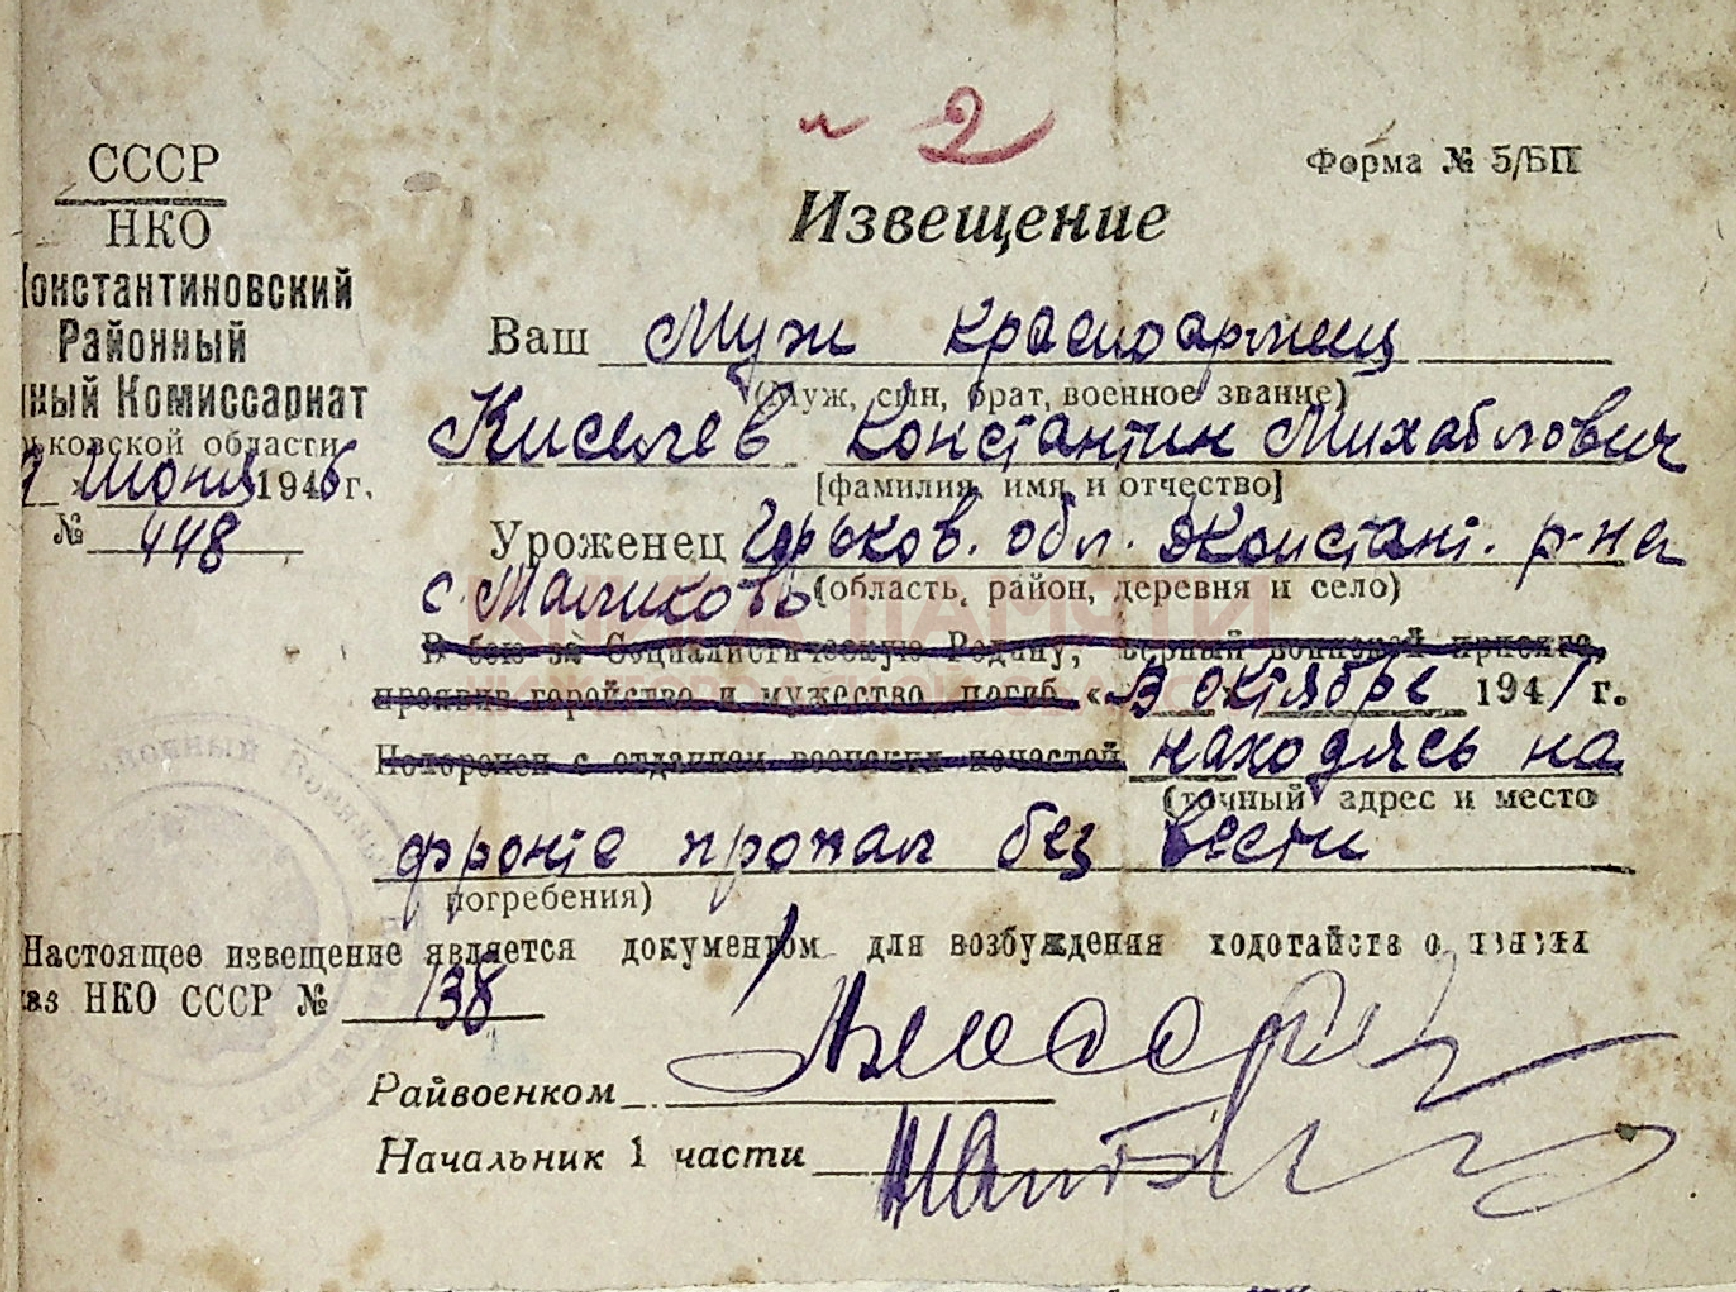 2
Форма № 5/БП
СССР
НКО
онстантиновский
Районный
ный Комиссариат
рьковской области
июня 1946 г.
№ 448
Извещение
Ваш Муж красноармеец
(Муж, сын, брат, военное звание)
Киселев Константин Михайлович
[фамилия, имя и отчество]
Уроженец Горьков. обл. Констант. р-на
(область, район, деревня и село)
с. Маликово
В бою за Социалистическую Родину, верный воинской присяге,
проявив геройство и мужество погиб « В октябре 1941 г.
Похоронен с отданием воинских почестей находясь на
(точный адрес и место
фронте пропал без вести
погребения)
Настоящее извещение является документом для возбуждения ходотайств о
аз НКО СССР № 138
Райвоенком
Начальник 1 части
КНИГА ПАМЯТИ
НИЖЕГОРОДСКОЙ ОБЛАСТИ